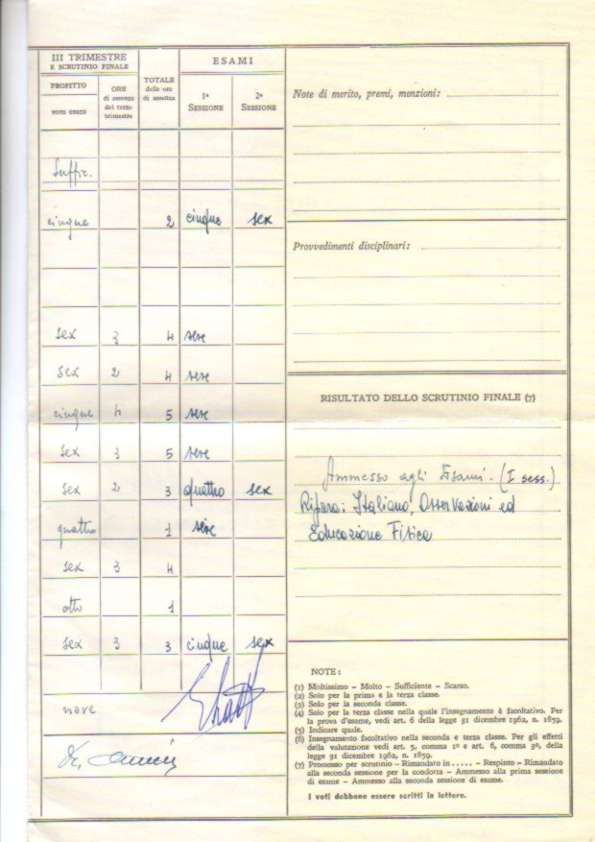 III TRIMESTRE
E SCRUTINIO FINALE
PROFITTO
voto unico
ORE
di assenza
del terzo
trimestre
TOTALE
delle ore
di assenza
ESAMI
1ª
SESSIONE
2ª
SESSIONE
Suffic.
cinque 2 cinque sex
sex 3 4 sex
sex 2 4 sex
cinque 4 5 sex
sex 3 5 sex
sex 2 3 quattro sex
quattro 1 sex
sex 3 4
otto 1
sex 3 3 cinque sex
nove
Note di merito, premi, menzioni:
Provvedimenti disciplinari:
RISULTATO DELLO SCRUTINIO FINALE (7)
Ammesso agli Esami. (I sess.)
Ripara: Italiano, Osservazioni ed
Educazione Fisica
NOTE:
(1) Moltissimo – Molto – Sufficiente – Scarso.
(2) Solo per la prima e la terza classe.
(3) Solo per la seconda classe.
(4) Solo per la terza classe nella quale l'insegnamento è facoltativo. Per
la prova d'esame, vedi art. 6 della legge 31 dicembre 1962, n. 1859.
(5) Indicare quale.
(6) Insegnamento facoltativo nella seconda e terza classe. Per gli effetti
della valutazione vedi art. 5, comma 1º e art. 6, comma 3º, della
legge 31 dicembre 1962, n. 1859.
(7) Promosso per scrutinio – Rimandato in ..... – Respinto – Rimandato
alla seconda sessione per la condotta – Ammesso alla prima sessione
di esame – Ammesso alla seconda sessione di esame.
I voti debbono essere scritti in lettere.